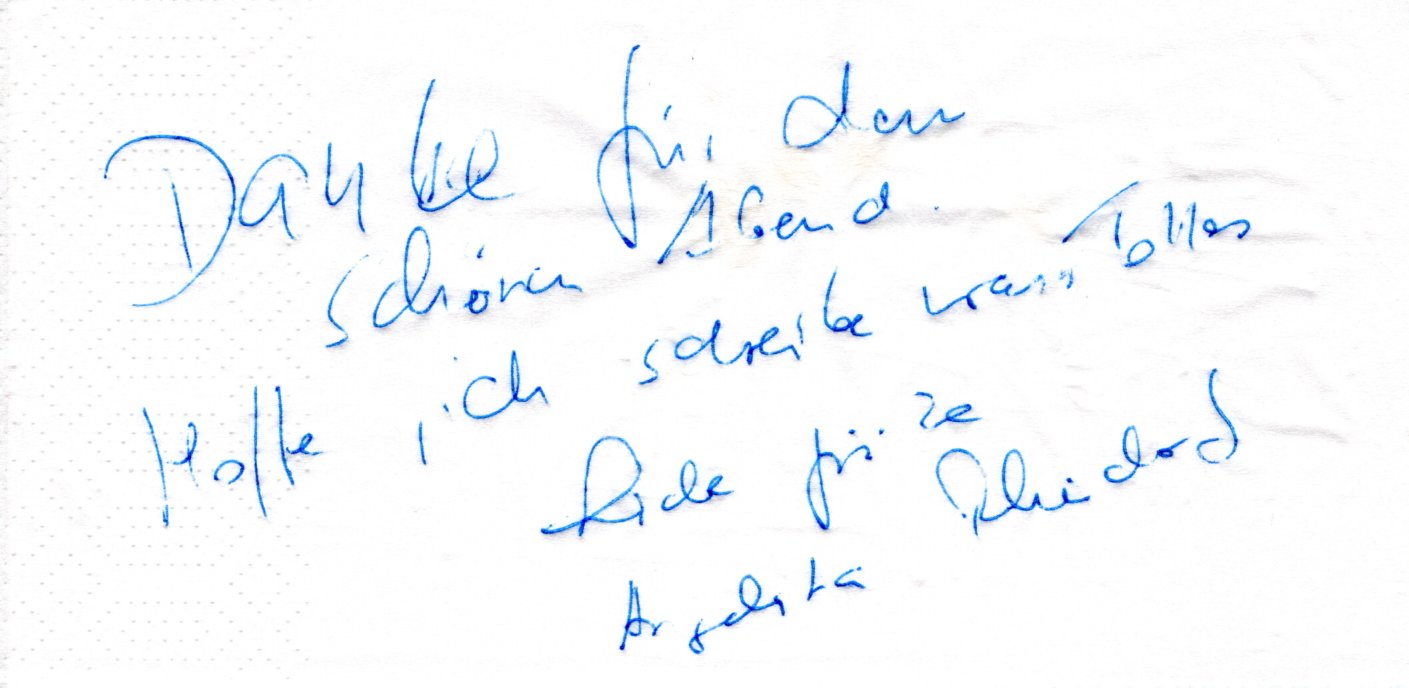 Danke für den
schönen Abend.
Hoffe, ich schreibe was Tolles
Liebe Grüße
Angelika